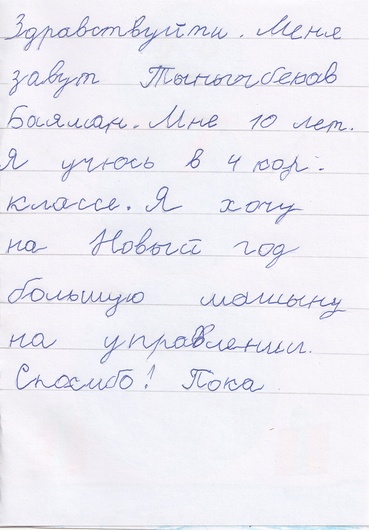 Здравствуйти. Меня
завут Тынычбеков
Баяман. Мне 10 лет.
Я учюсь в 4 кор.
классе. Я хочу
на Новый год
большую машыну
на управлении.
Спасибо! Пока